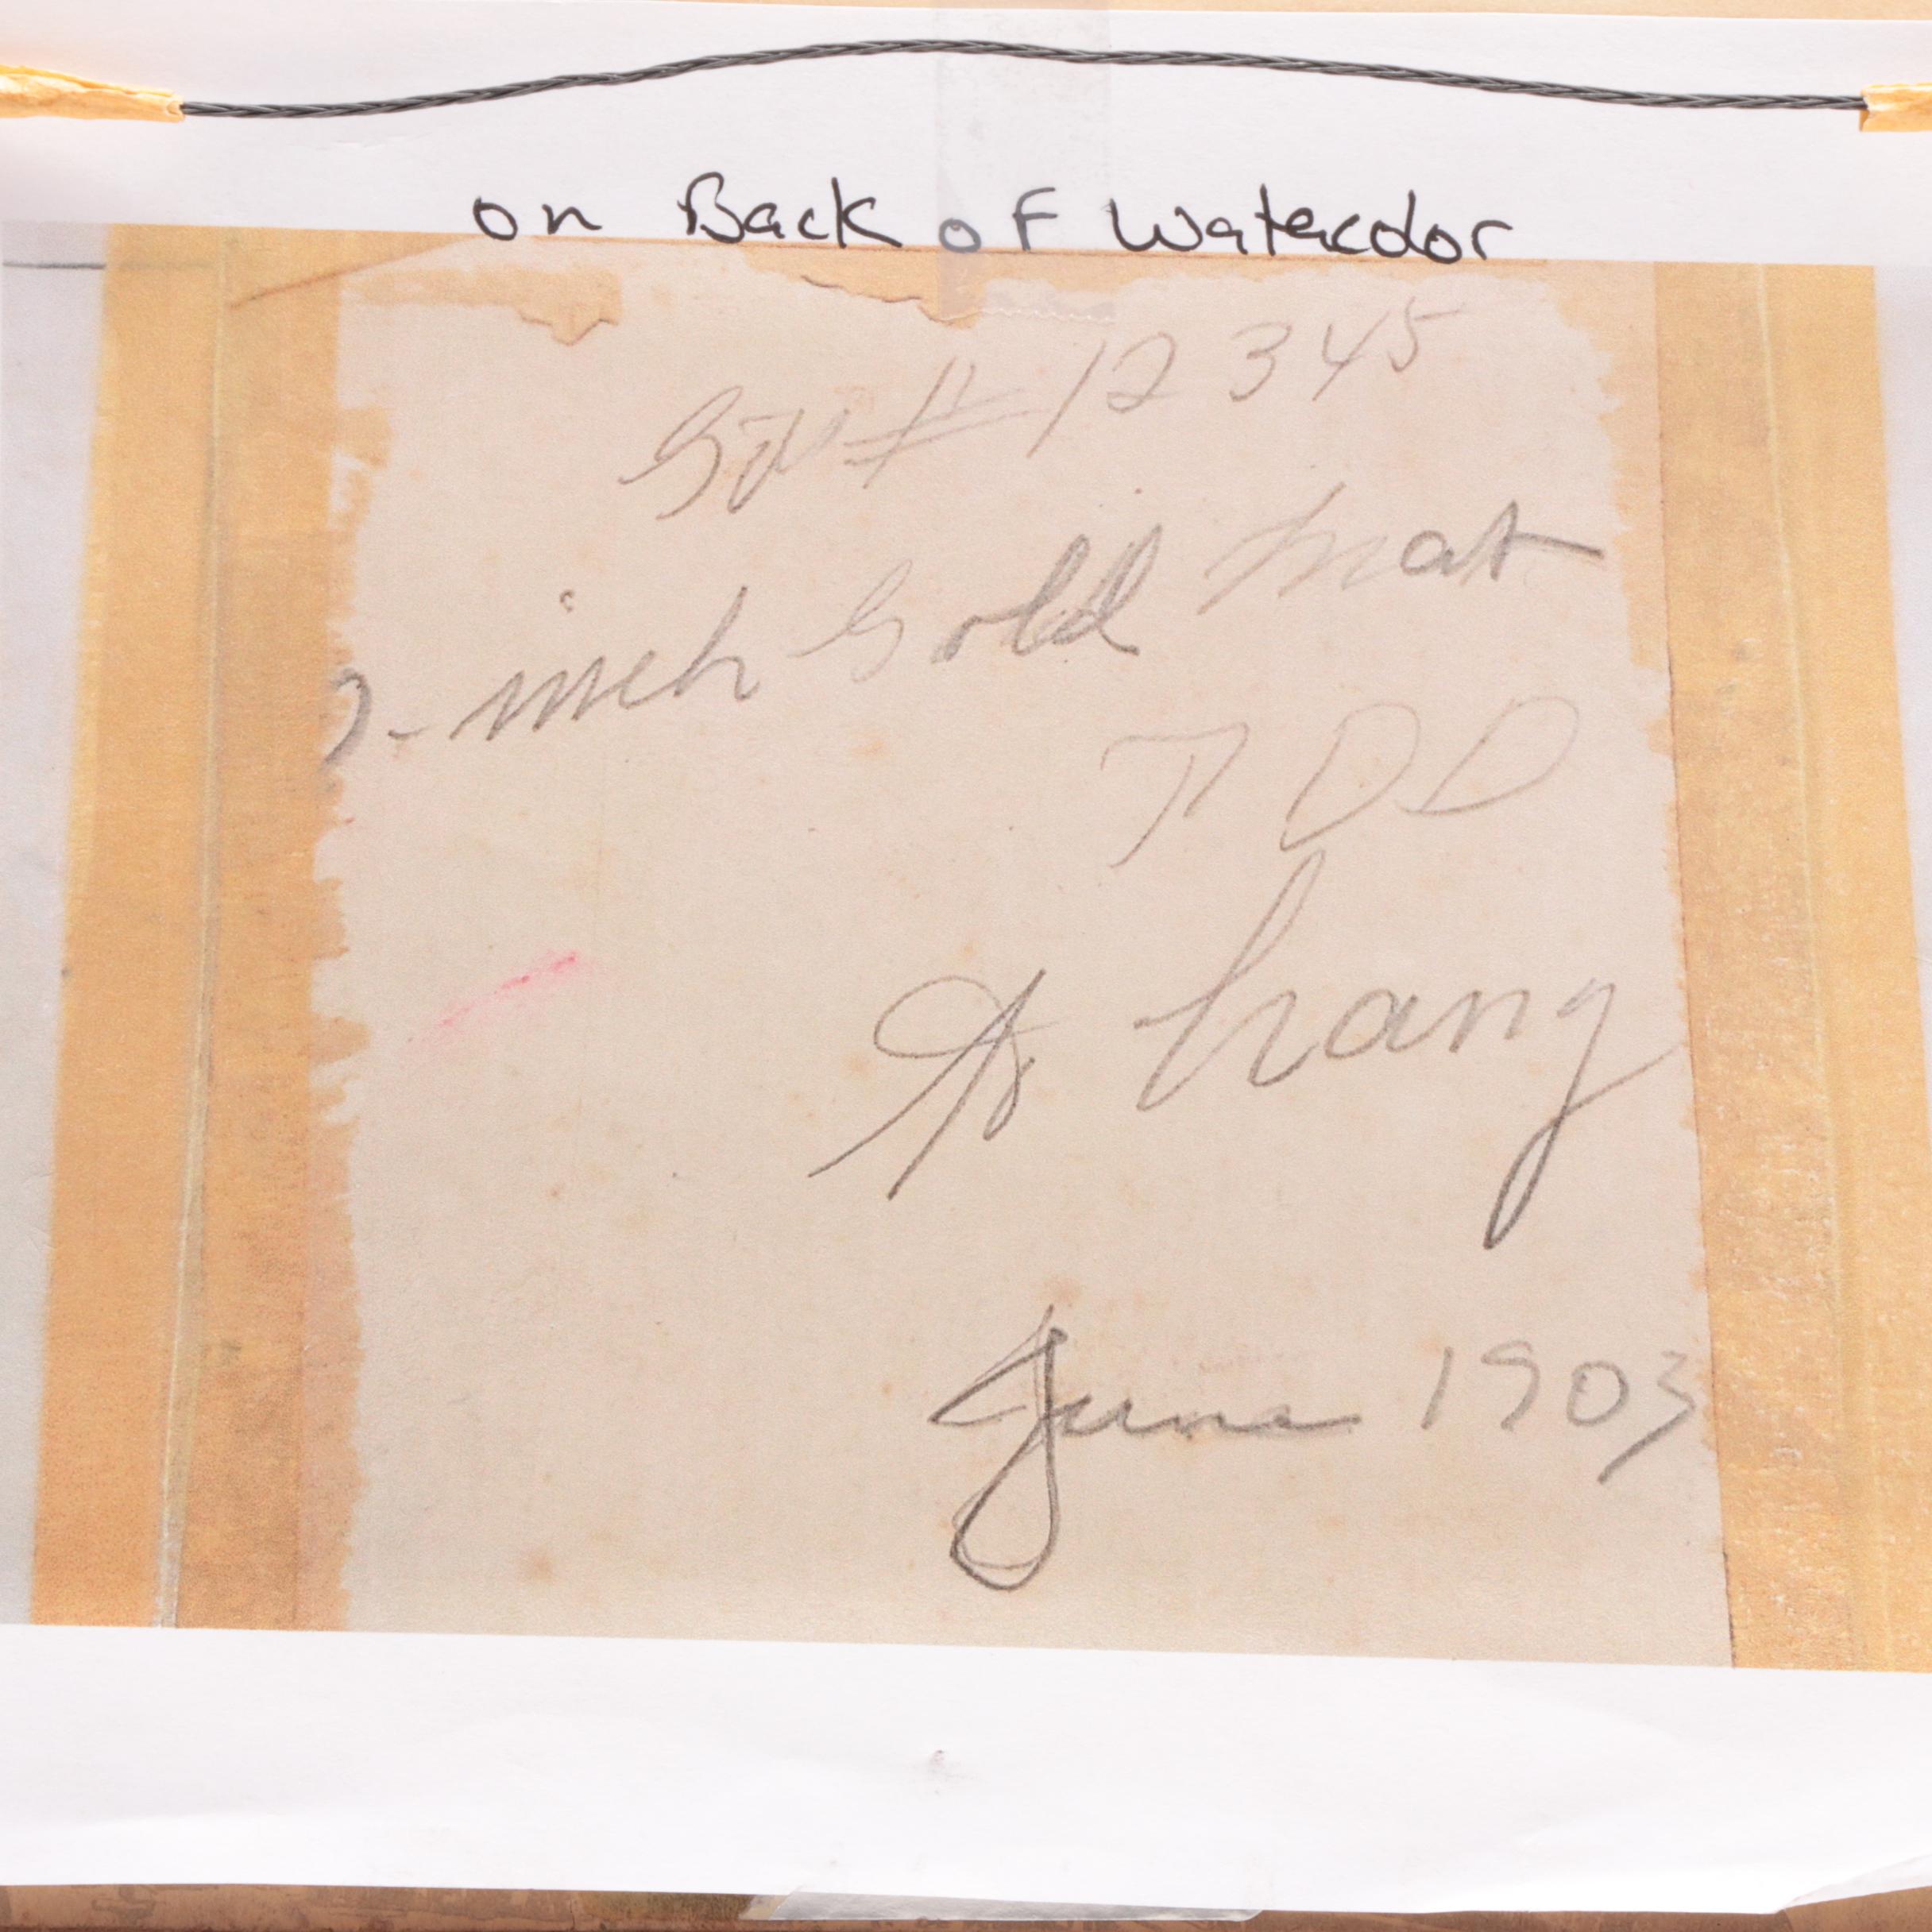 on Back of Watercolor
# 12345
-inch Gold mat
T D D
to hang
June 1903